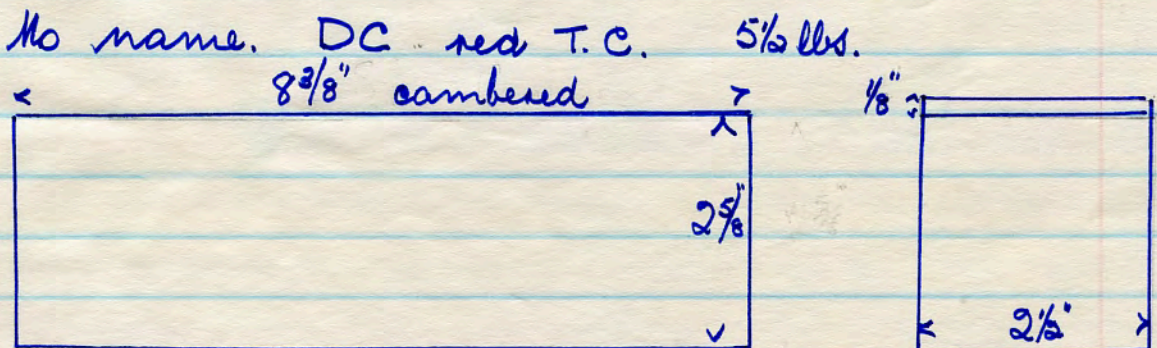 No name. DC red T.C. 5½ lbs.
8 3/8" cambered
1/8"
2 5/8"
2½"